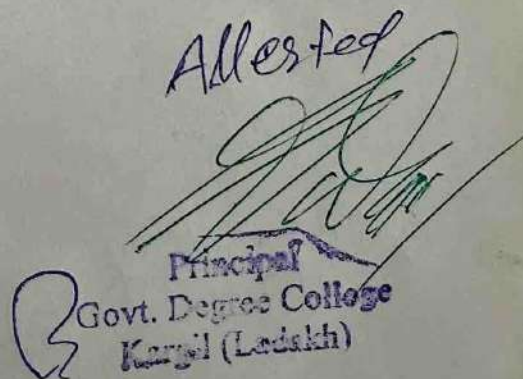 Attested
Principal
Govt. Degree College
Kargil (Ladakh)